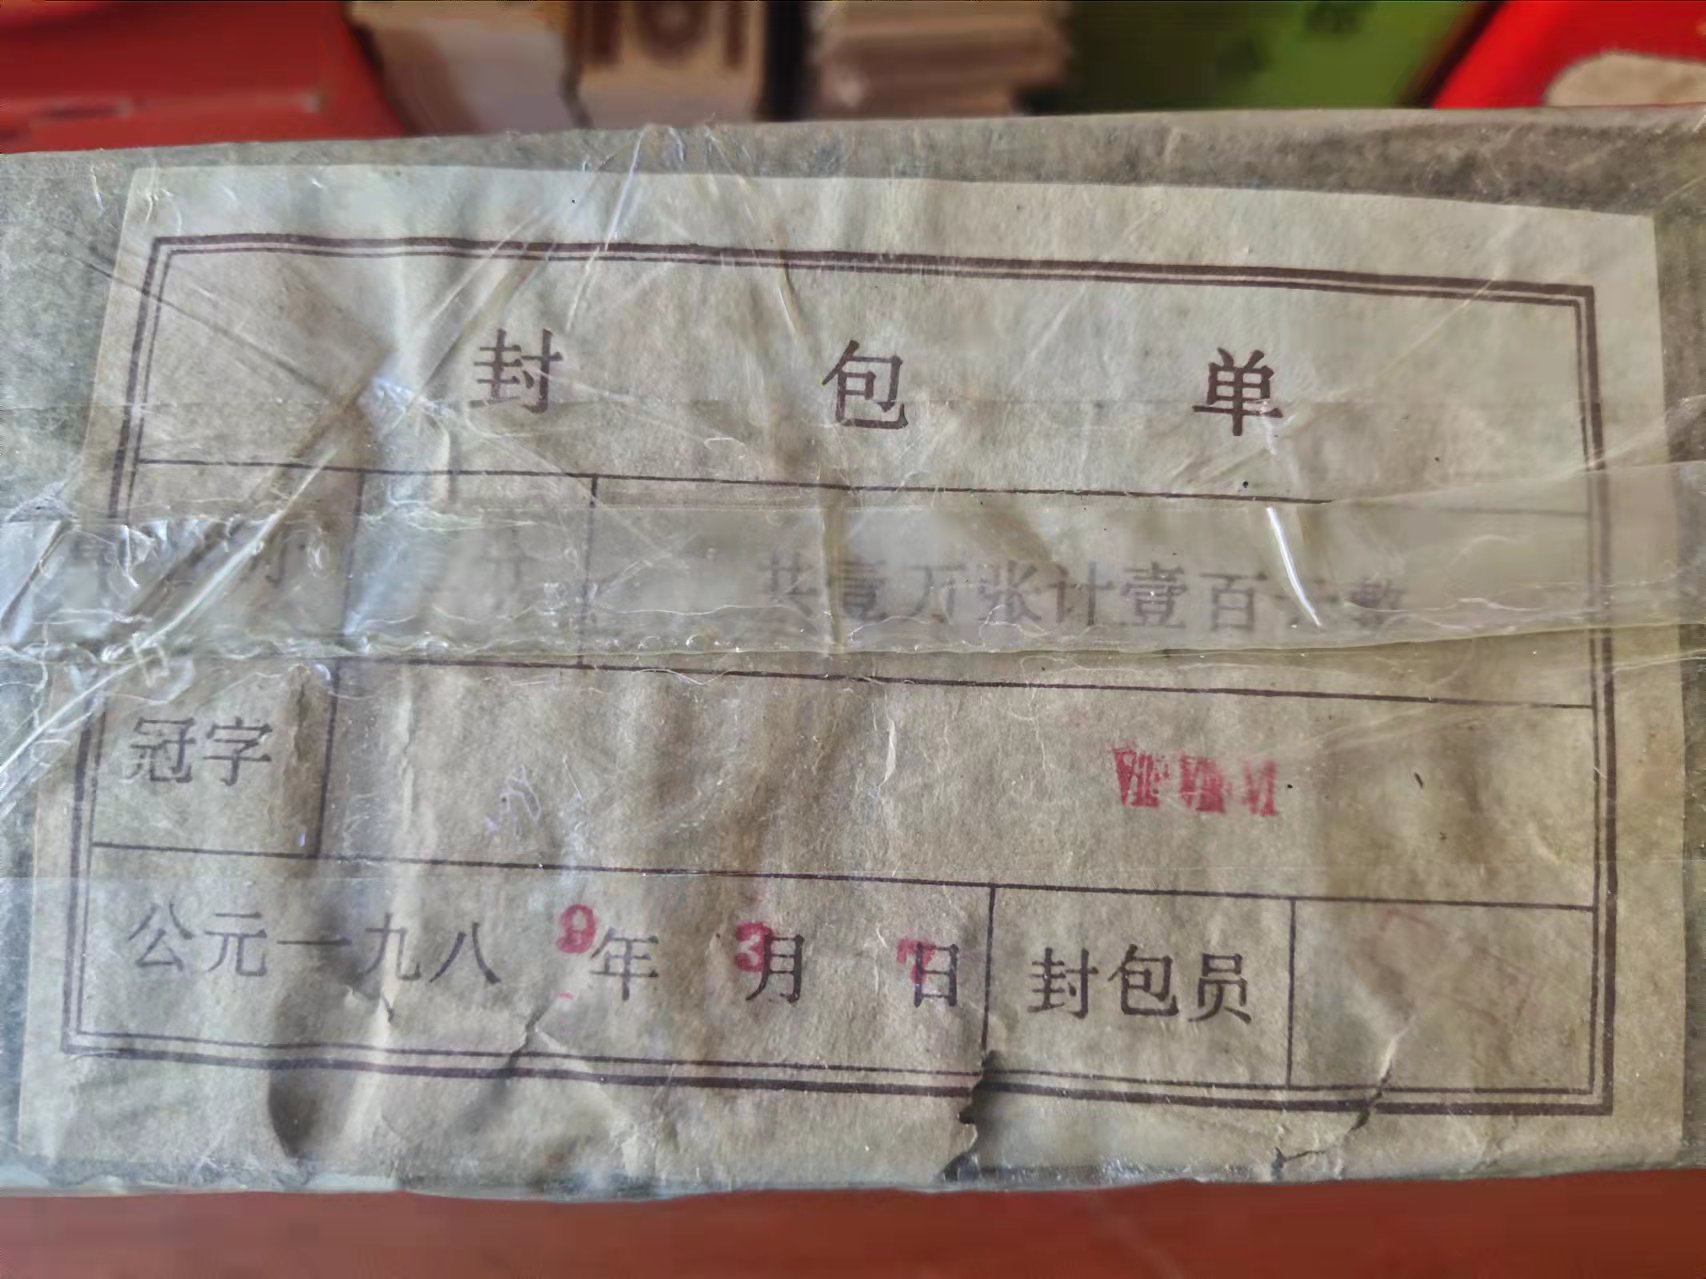 封包单
共壹万张计壹百元整
冠字
公元一九八9年3月7日 封包员